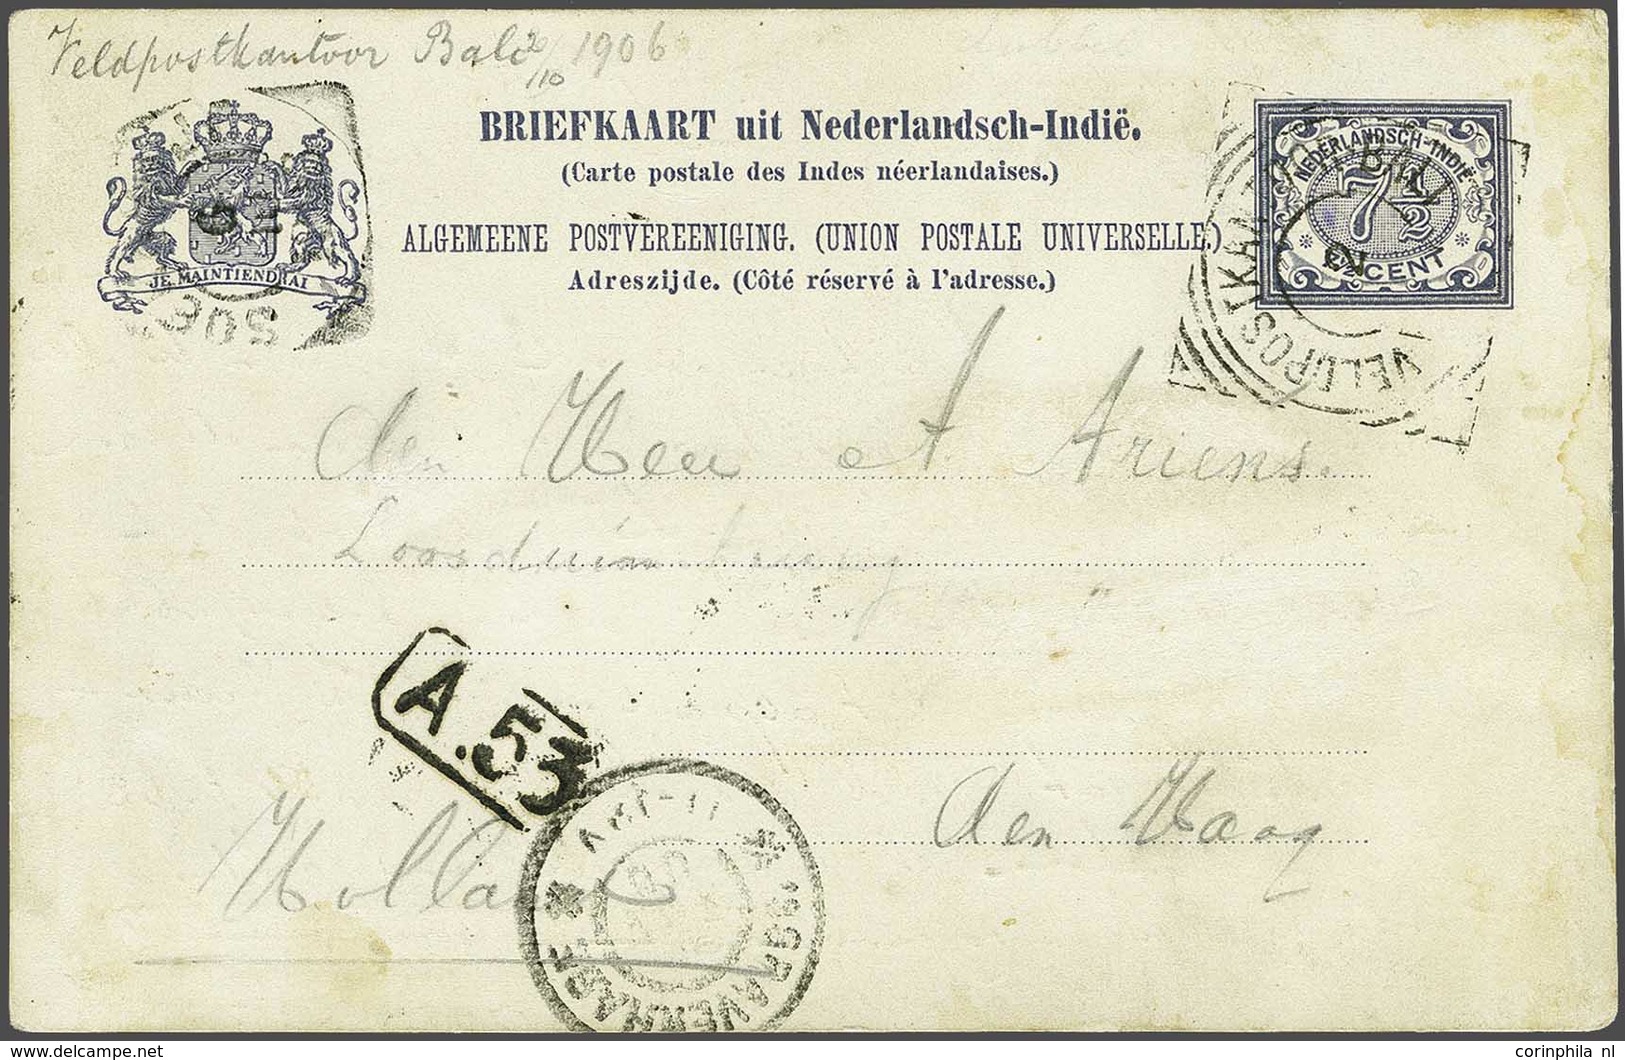 Veldpostkantoor Bali 2/10 1906
BRIEFKAART uit Nederlandsch-Indië.
(Carte postale des Indes néerlandaises.)
ALGEMEENE POSTVEREENIGING. (UNION POSTALE UNIVERSELLE.)
Adreszijde. (Côté réservé à l'adresse.)
JE MAINTIENDRAI
NEDERLANDSCH-INDIË
7 1/2
CENT
VELDPOSTKANTOOR BALI
den Heer A. Ariens.
A.53
den Haag
Holland
'S GRAVENHAGE
corinphila nl